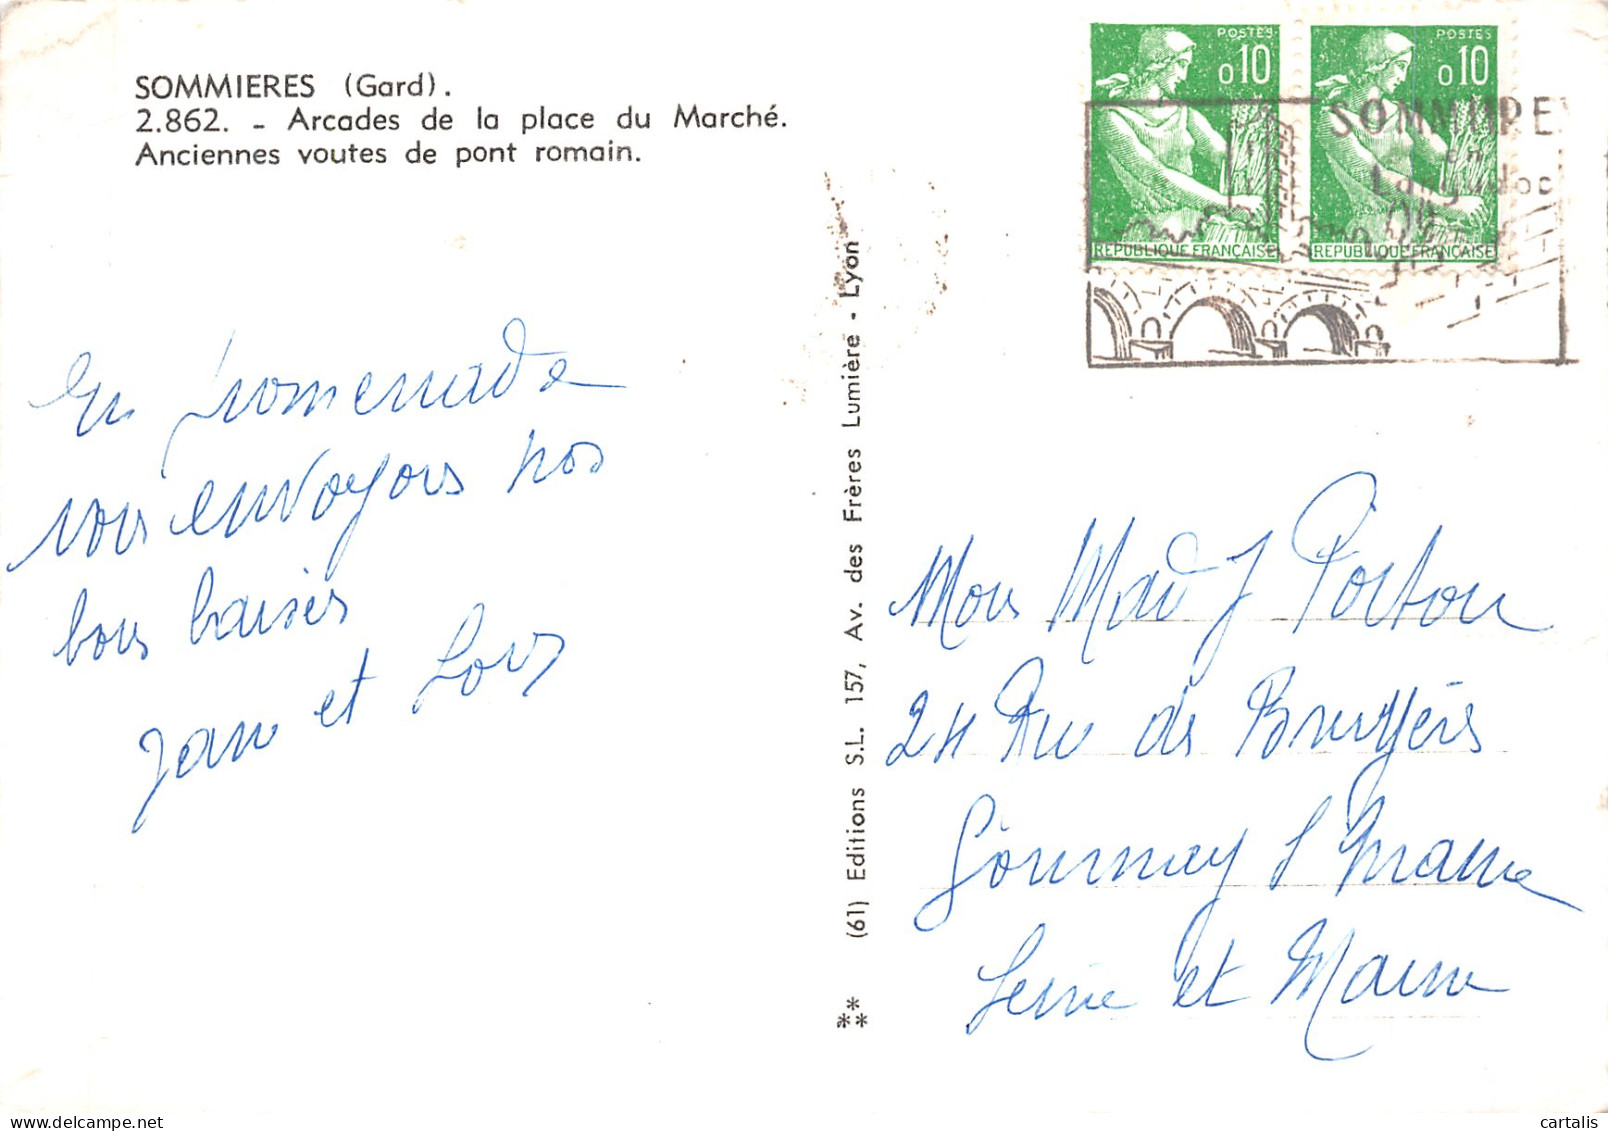 SOMMIERES (Gard).
2.862. - Arcades de la place du Marché.
Anciennes voutes de pont romain.
En promenade
vous envoyons nos
bons baisers
Jean et
(61) Editions S.L. 157, Av. des Frères Lumière - Lyon
**
POSTES
0,10
REPUBLIQUE FRANÇAISE
POSTES
0,10
REPUBLIQUE FRANÇAISE
SOMMIERE
en
Languedoc
Mons Mad J
24 Rue des Bruyères
Gournay s/ Marne
Seine et Marne
cartalis